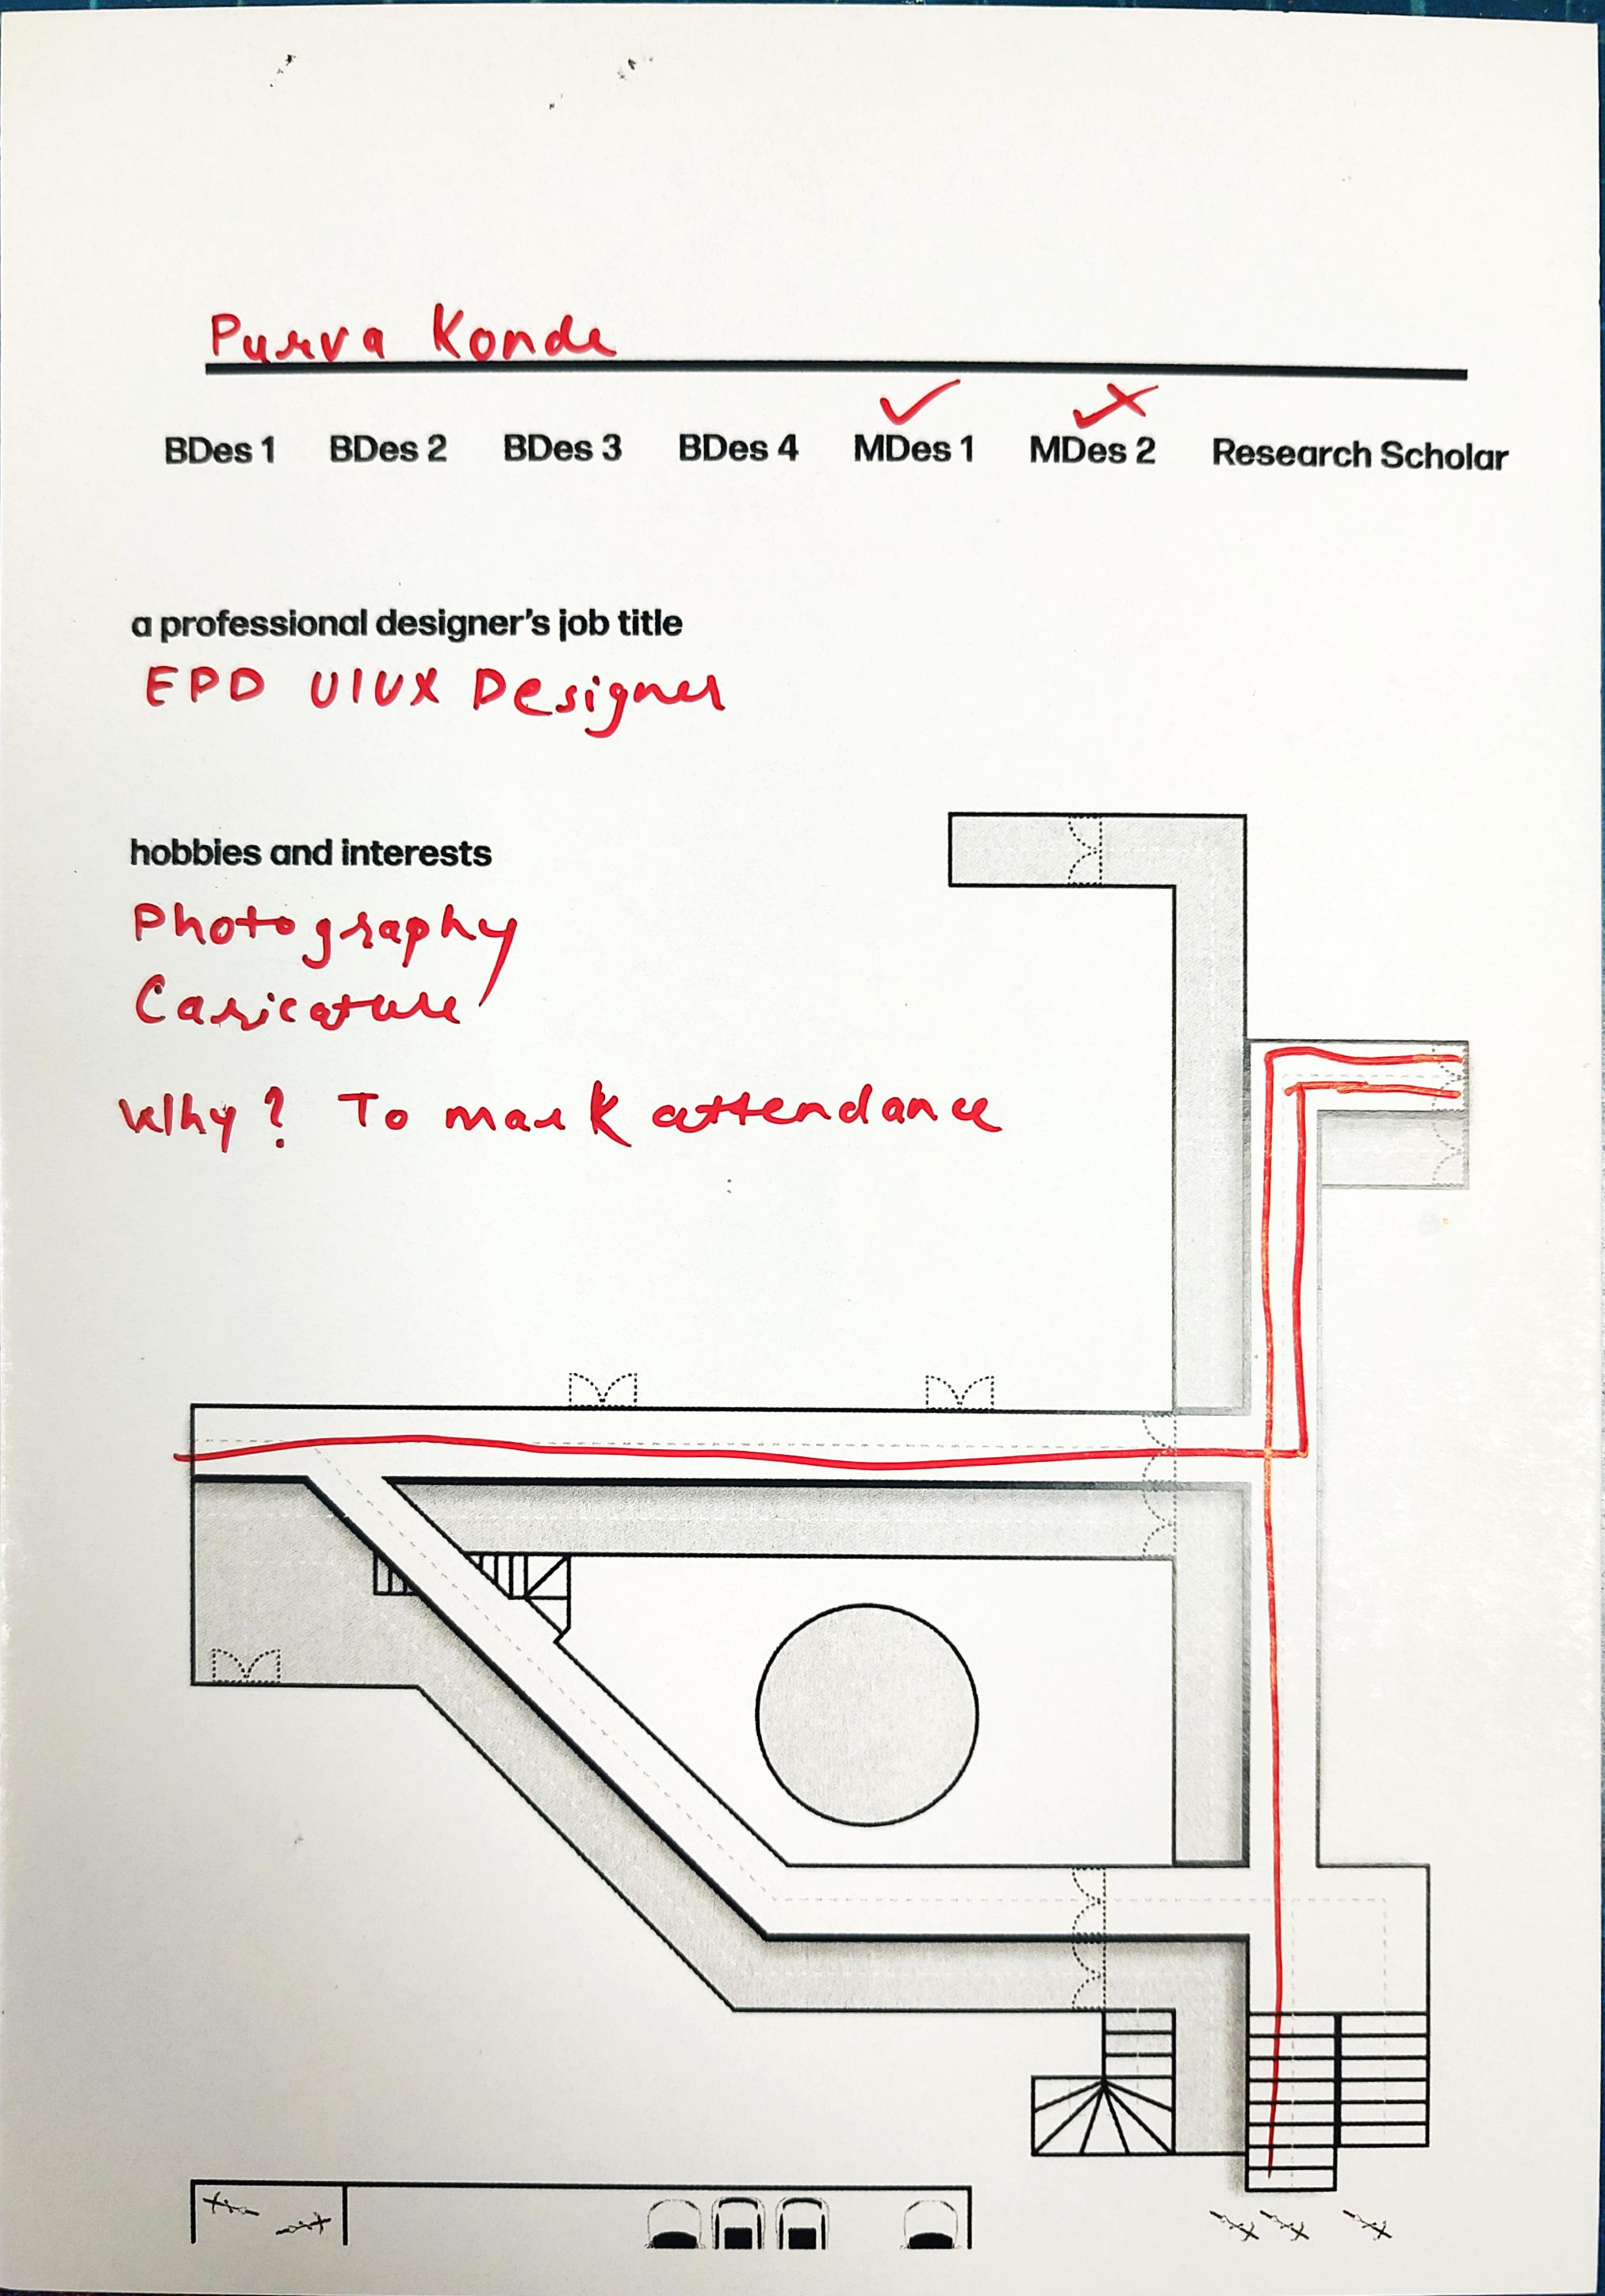 Purva Konde
BDes 1 BDes 2 BDes 3 BDes 4 MDes 1 MDes 2 Research Scholar
a professional designer's job title
EPD UIUX Designer
hobbies and interests
Photography
Caricature
Why? To mark attendance